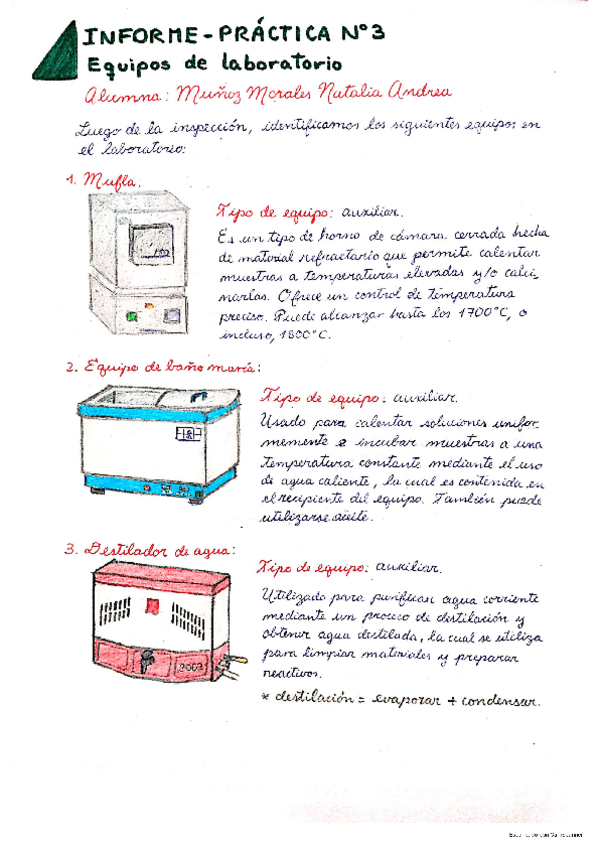 INFORME-PRÁCTICA Nº3
Equipos de laboratorio
Alumna: Muñoz Morales Natalia Andrea
Luego de la inspección, identificamos los siguientes equipos en
el laboratorio:
1. Mufla.
Tipo de equipo: auxiliar.
Es un tipo de horno de cámara cerrada hecha
de material refractario que permite calentar
muestras a temperaturas elevadas y/o calci-
narlas. Ofrece un control de temperatura
preciso. Puede alcanzar hasta los 1700°C, o
incluso, 1800°C.
2. Equipo de baño maría:
Tipo de equipo: auxiliar.
Usado para calentar soluciones unifor-
memente e incubar muestras a una
temperatura constante mediante el uso
de agua caliente, la cual es contenida en
el recipiente del equipo. También puede
utilizarse aceite.
3. Destilador de agua:
Tipo de equipo: auxiliar.
Utilizado para purificar agua corriente
mediante un proceso de destilación y
obtener agua destilada, la cual se utiliza
para limpiar materiales y preparar
reactivos.
2003
* destilación = evaporar + condensar.